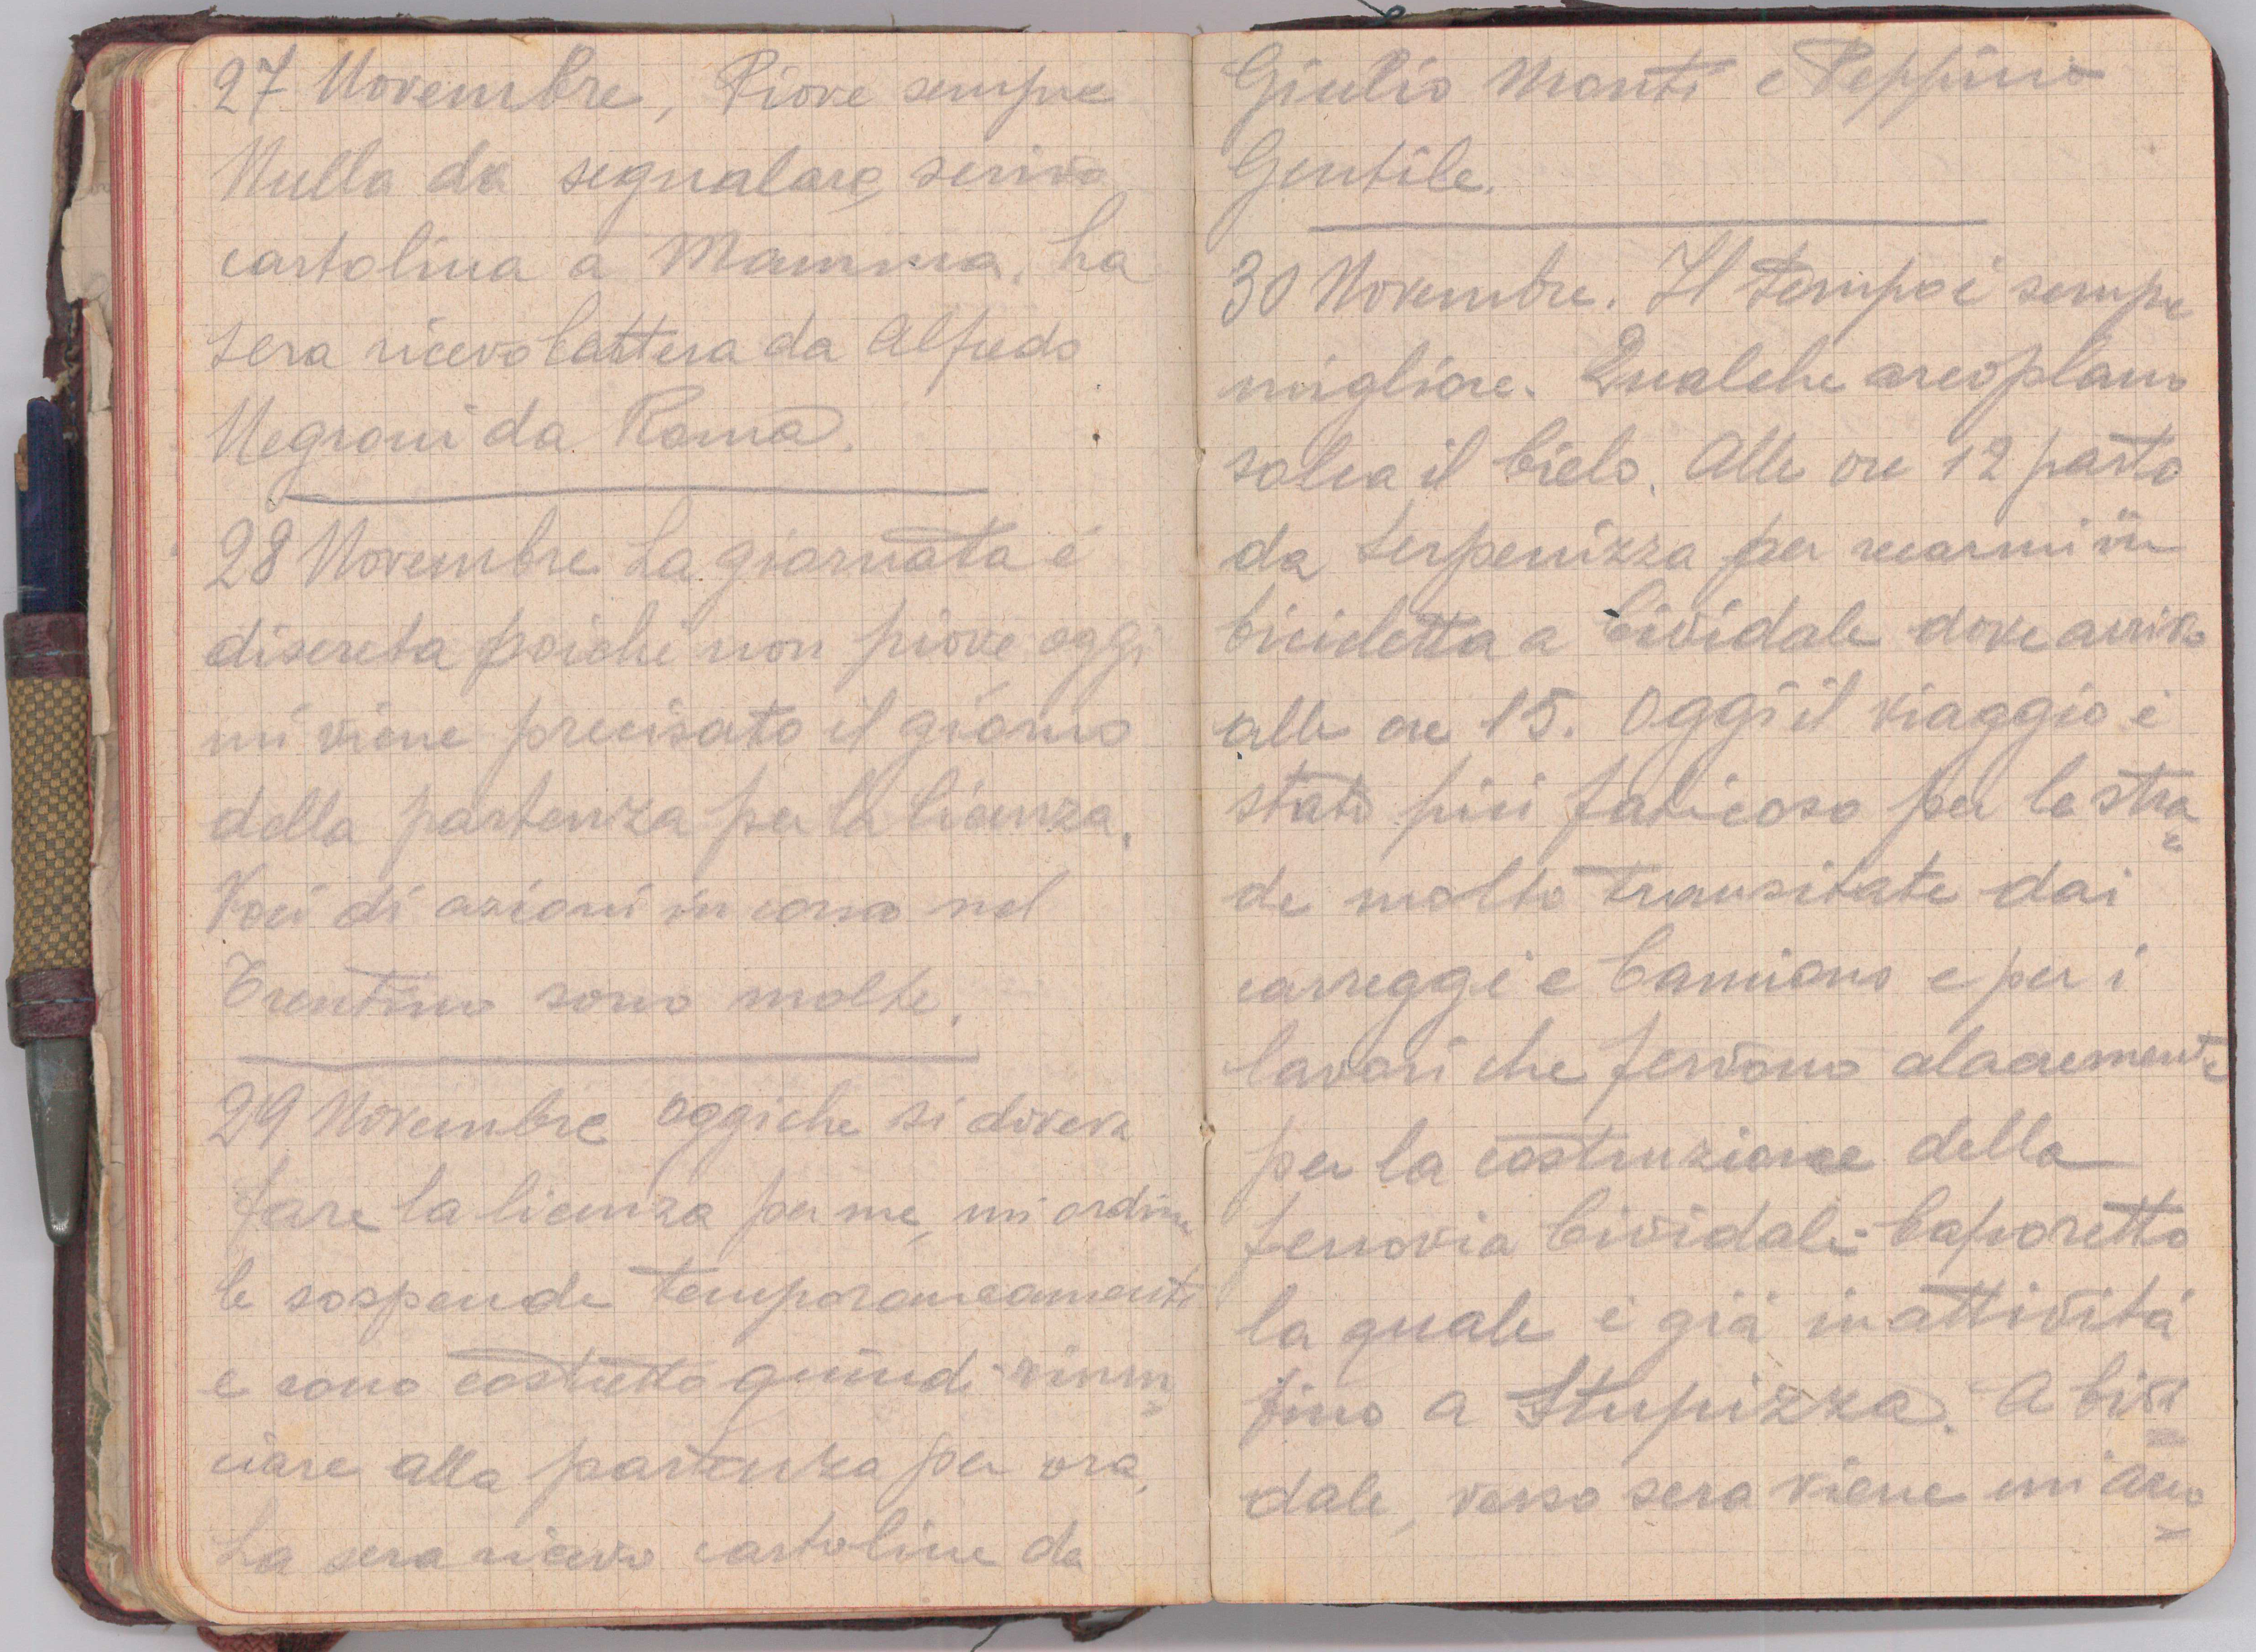 27 Novembre, Piove sempre
Nulla da segnalare, scrivo
cartolina a Mamma. La
sera ricevo lettera da Alfredo
Negroni da Roma.
28 Novembre La giornata é
discreta poiché non piove oggi
mi viene precisato il giorno
della partenza per la licenza.
Voci di azioni in corso nel
Trentino sono molte.
29 Novembre Oggi che si doveva
fare la licenza per me, un ordine
le sospende temporaneamente
e sono costretto quindi rinun=
ciare alla partenza per ora.
La sera ricevo cartoline da
Giulio Monti e Peppino
Gentile.
30 Novembre. Il tempo é sempre
migliore. Qualche areoplano
solca il Cielo. Alle ore 12 parto
da Serpenizza per recarmi in
bicicletta a Cividale dove arrivo
alle ore 15. Oggi il viaggio é
stato piú faticoso per le stra=
de molto transitate dai
carreggi e Camions e per i
lavori che fervono alacremente
per la costruzione della
ferrovia Cividale-Caporetto
la quale é giá in attivitá
fino a Stupizza. A Civi=
dale, verso sera viene un aereo=